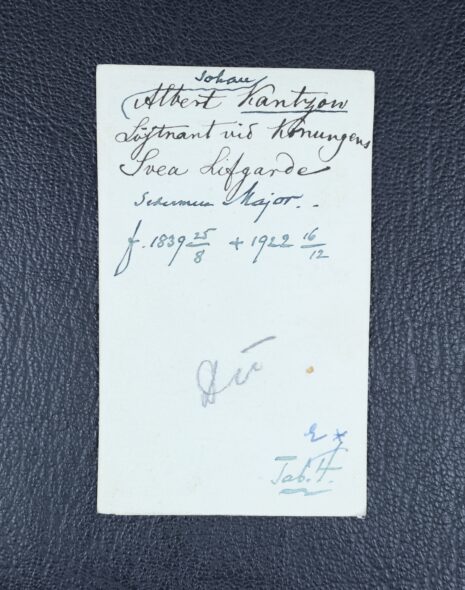 Johan
Albert Kantzow
Löjtnant vid Konungens
Svea Lifgarde
Sedermera Major. -
f. 1839 25/8 + 1922 16/12
Tab. 4.